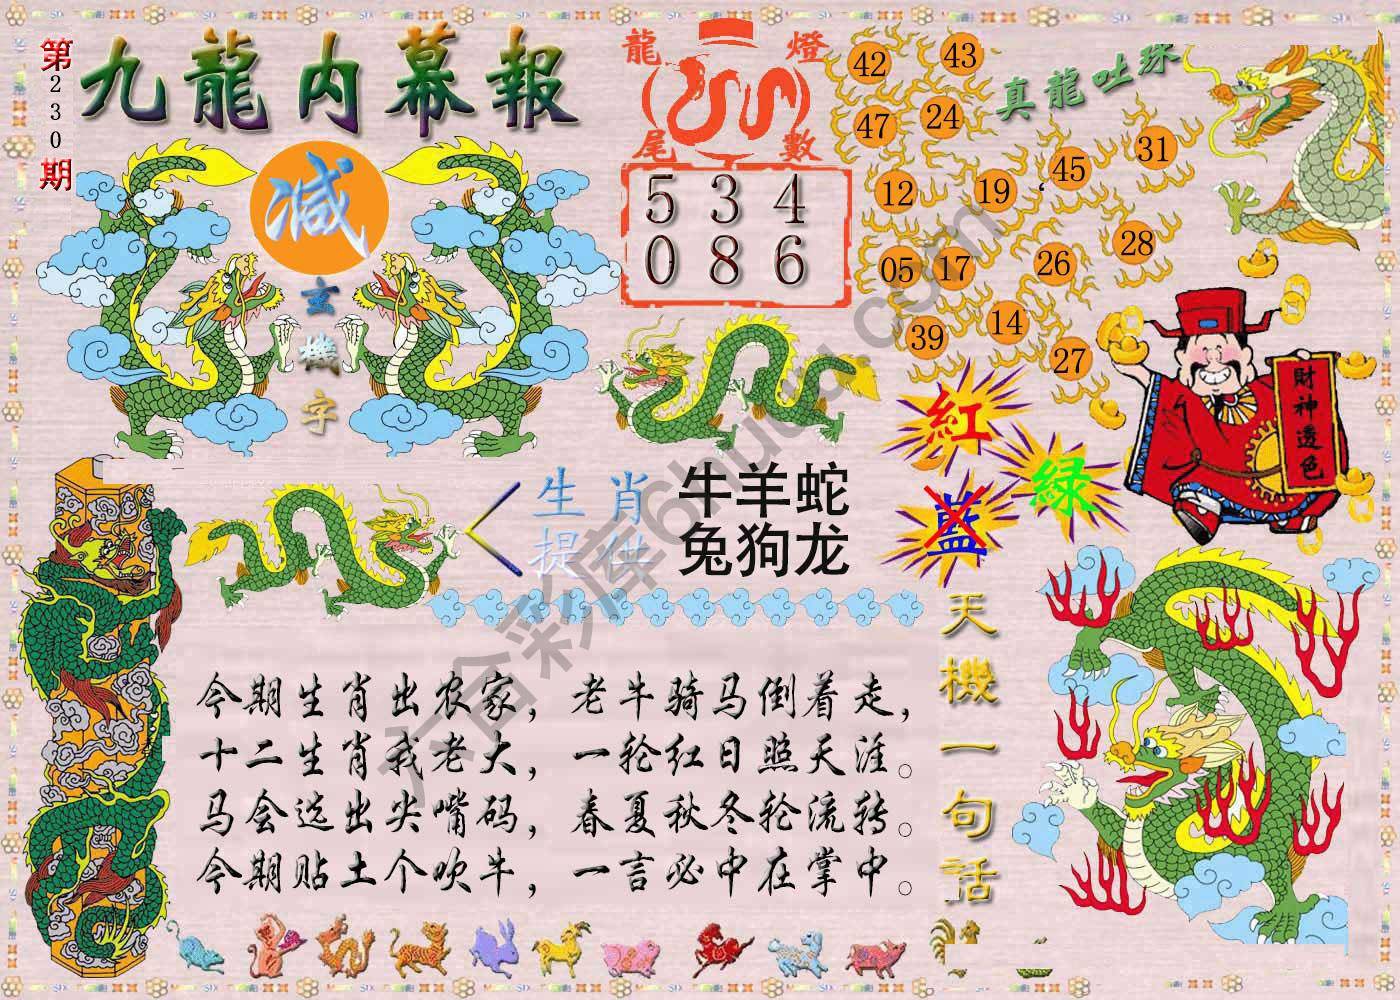 第230期
九龍内幕報
減
玄機字
龍燈
尾數
5 3 4
0 8 6
真龍吐珠
42 43
47 24
12 19 45 31
05 17 26 28
39 14 27
財神透色
紅
藍
綠
生肖
提供
牛羊蛇
兔狗龙
天機一句話
今期生肖出农家，老牛骑马倒着走，
十二生肖我老大，一轮红日照天涯。
马会选出尖嘴码，春夏秋冬轮流转。
今期贴士个吹牛，一言必中在掌中。
六合彩库6hudd.com